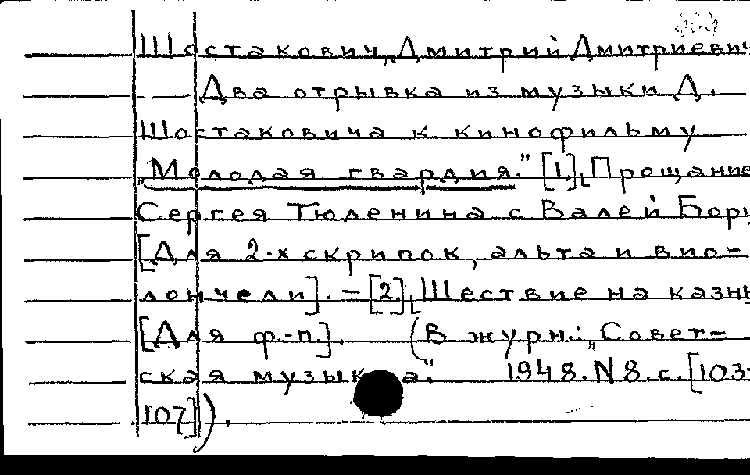 Шостакович, Дмитрий Дмитриевич
— Два отрывка из музыки Д.
Шостаковича к кинофильму
„Молодая гвардия." [1.] „Прощание
Сергея Тюленина с Валей Борц
[Для 2-х скрипок, альта и вио-
лончели]. — [2.] „Шествие на казнь
[Для ф.-п.]. (В журн.: „Совет-
ская музыка." 1948. N 8. с. [103-
107]).